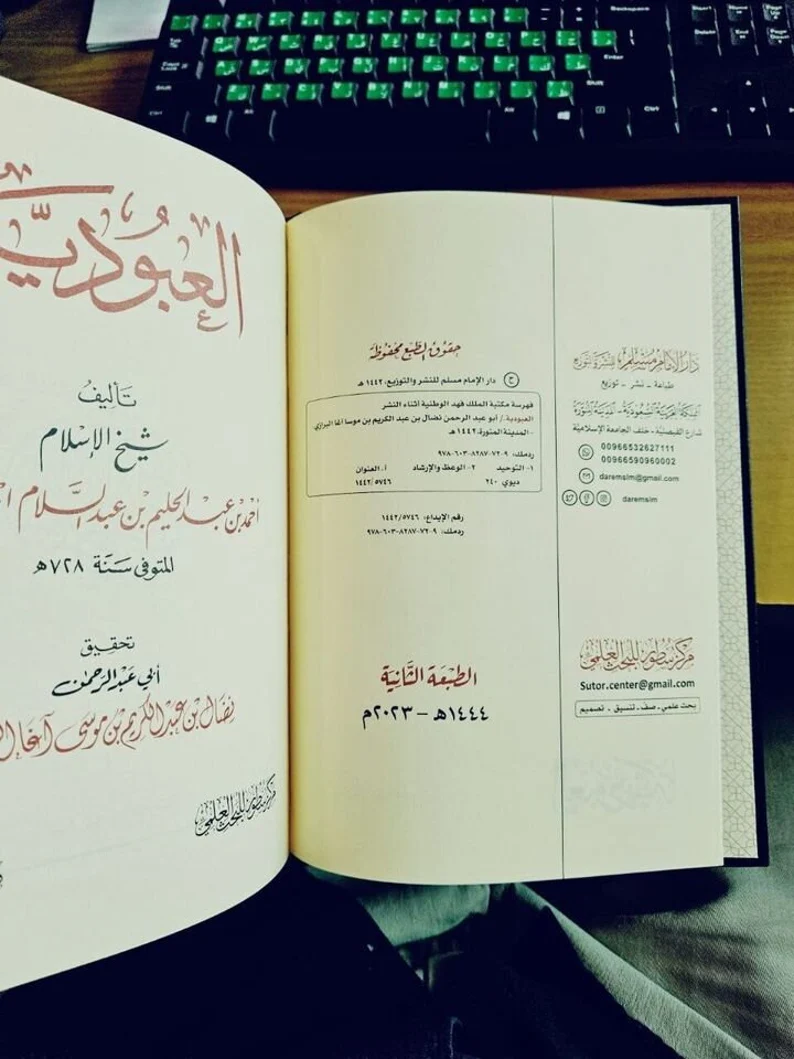 العبودية
تأليف
شيخ الإسلام
أحمد بن عبد الحليم بن عبد السلام
المتوفى سنة ٧٢٨هـ
تحقيق
أبي عبد الرحمن
نضال بن عبد الكريم بن موسى آغا
مركز سطور للبحث العلمي
حقوق الطبع محفوظة
ح دار الإمام مسلم للنشر والتوزيع، ١٤٤٢ هـ
فهرسة مكتبة الملك فهد الوطنية أثناء النشر
العبودية./ أبو عبد الرحمن نضال بن عبد الكريم بن موسى آغا البرازي
-المدينة المنورة، ١٤٤٢هـ
ردمك: ٩-٧٢-٨٢٨٧-٦٠٣-٩٧٨
١- التوحيد ٢- الوعظ والإرشاد أ. العنوان
ديوي ٢٤٠ ١٤٤٢/٥٧٤٦
رقم الإيداع: ١٤٤٢/٥٧٤٦
ردمك: ٩-٧٢-٨٢٨٧-٦٠٣-٩٧٨
الطبعة الثانية
١٤٤٤هـ - ٢٠٢٣م
دار الإمام مسلم للنشر والتوزيع
طباعة - نشر - توزيع
المملكة العربية السعودية - المدينة المنورة
شارع الفيصلية - خلف الجامعة الإسلامية
00966532627111
00966590960002
daremsim@gmail.com
daremsim
مركز سطور للبحث العلمي
Sutor.center@gmail.com
بحث علمي - صف - تنسيق - تصميم